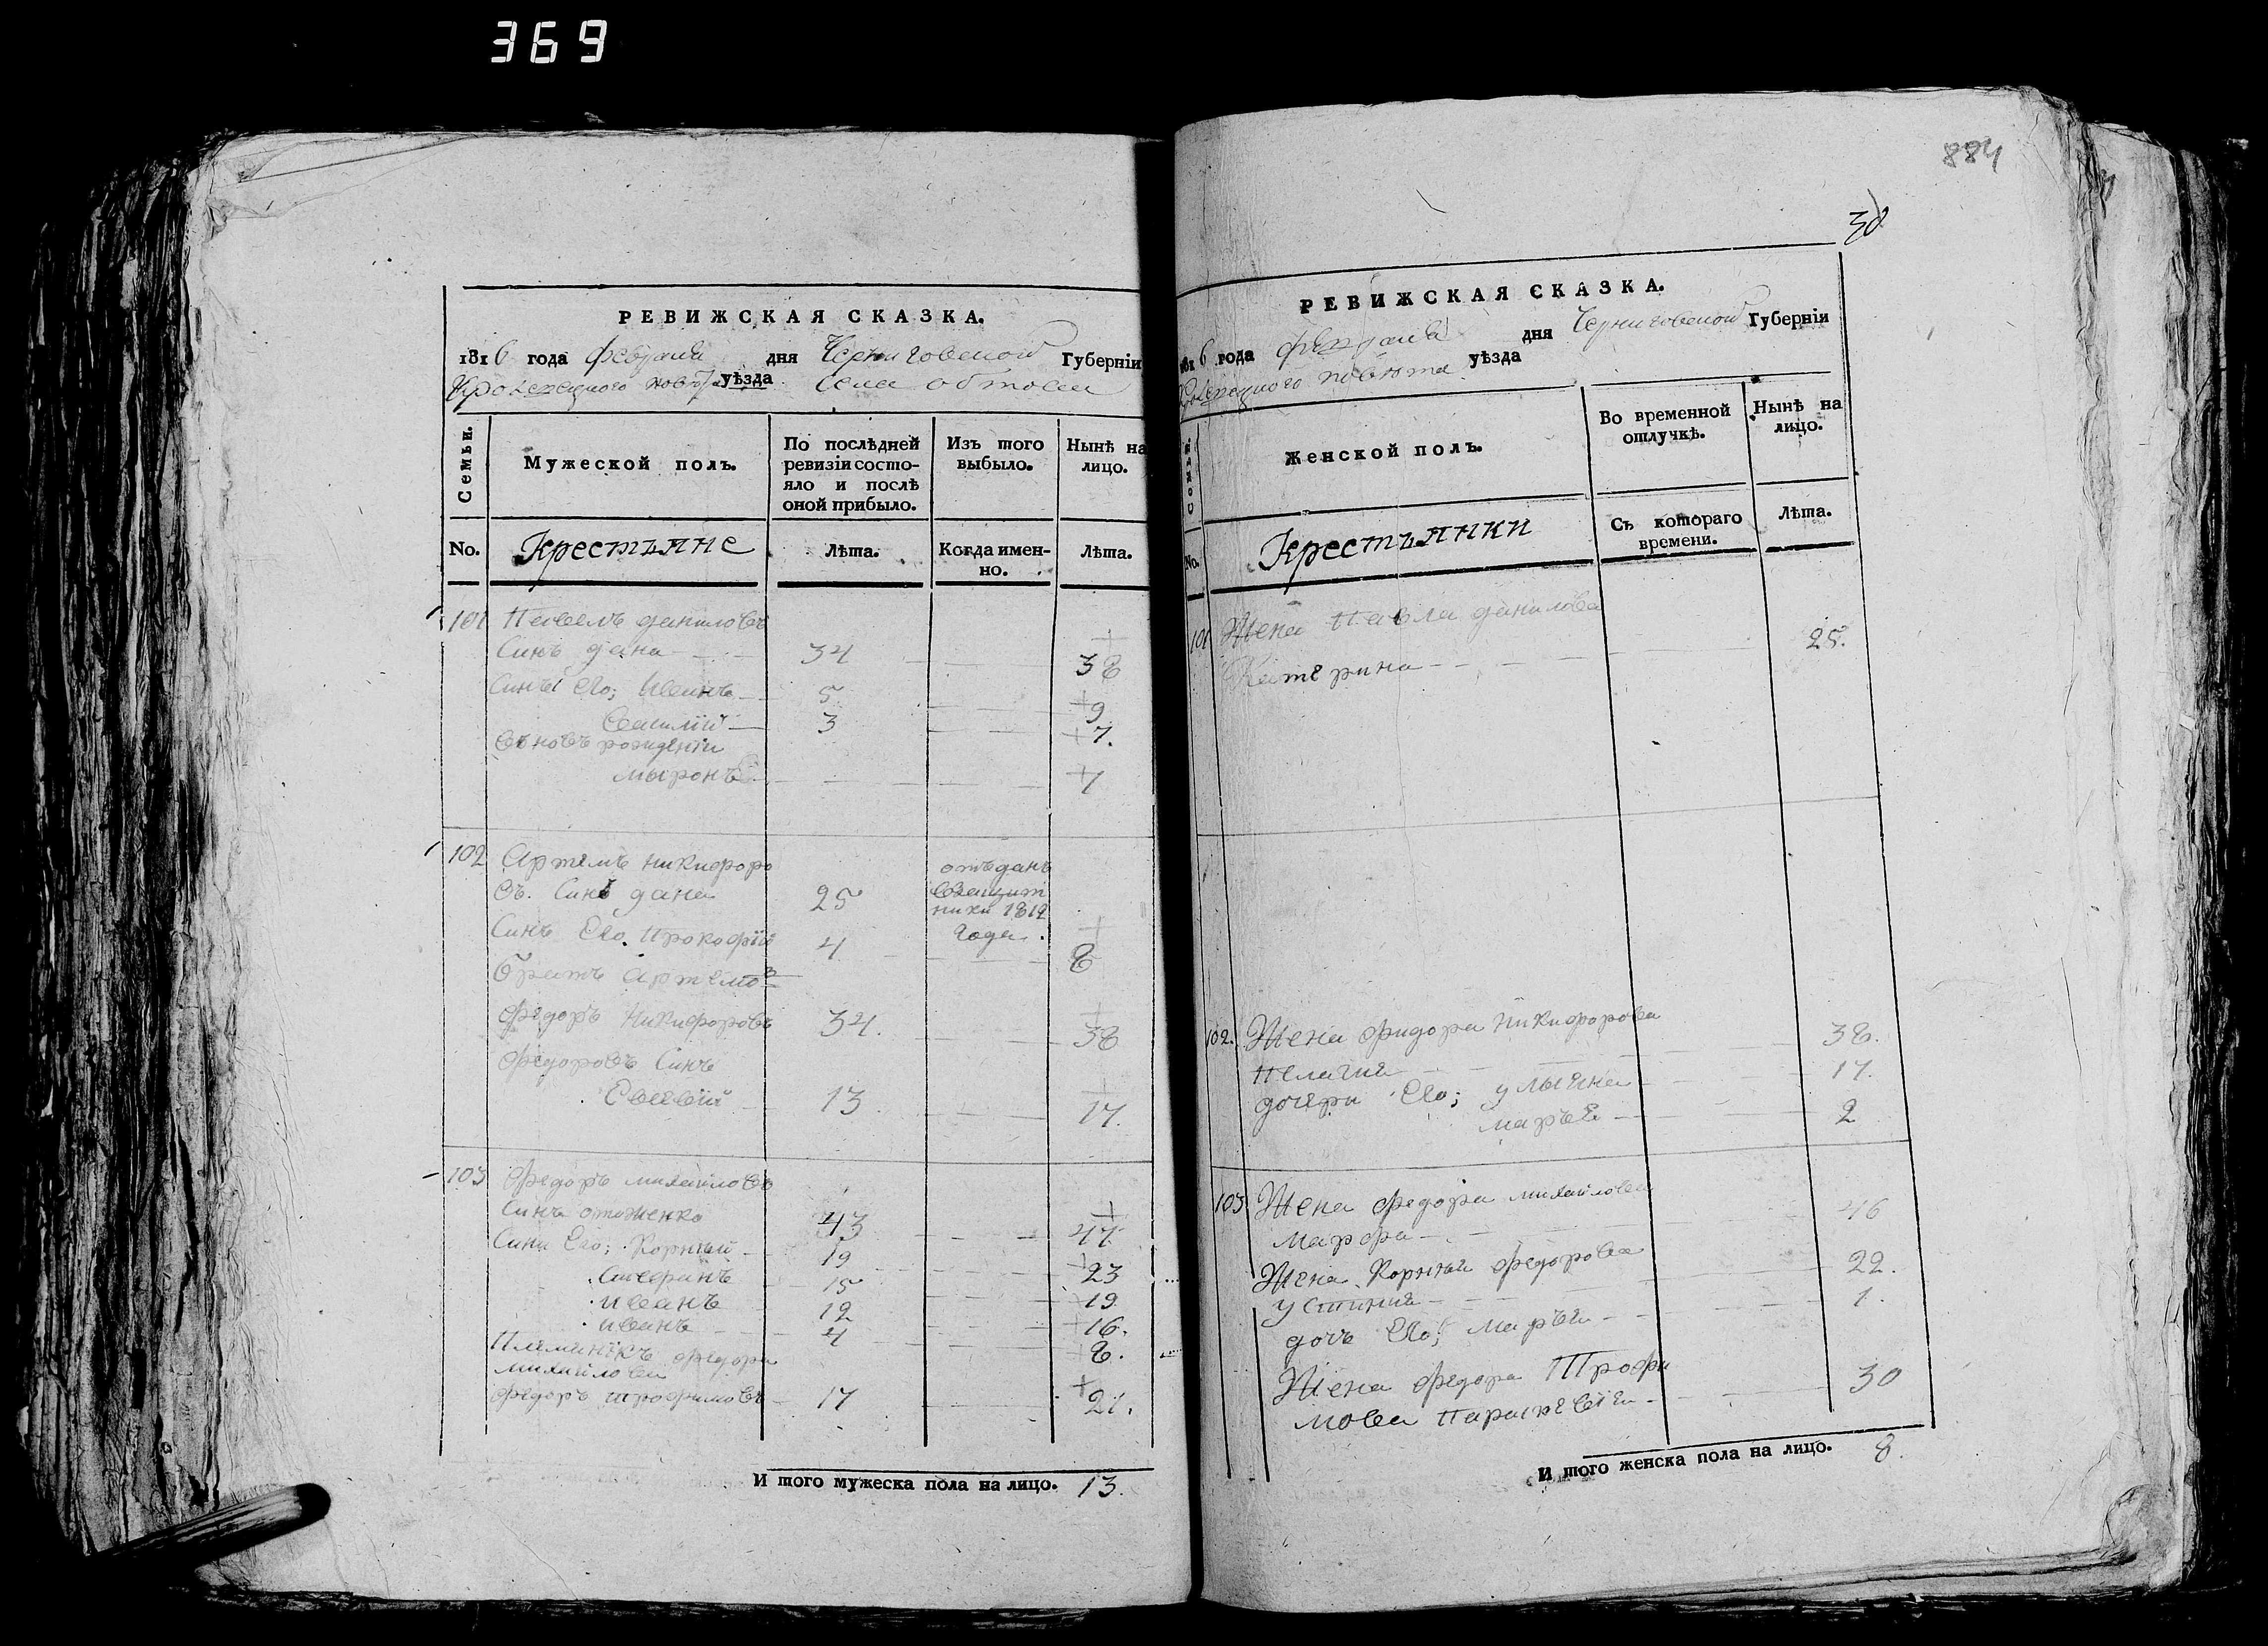 369
884
30
РЕВИЖСКАЯ СКАЗКА.
1816 года февраля дня Черниговской Губерніи
Кролевецкого повѣта уѣзда села обтова
Семьи.
Мужеской полъ.
По послѣдней ревизіи состояло и послѣ оной прибыло.
Изъ того выбыло.
Нынѣ на лицо.
No. Крестьяне Лѣта. Когда именно. Лѣта.
101 Павелъ даниловъ
Синъ дана 34 38
Сины Его; Иванъ 5 9
Василій 3 7.
вновь рожденни
мыронъ 4
102 Артемъ никифоро отъданъ
въ. Синъ дана 25
ники 1812
Синъ Его. Прокофій 4 года. 8
братъ артемо
федоръ Никифоровъ 34. 38
федоровъ Синъ
13 17.
103 федоръ михайловъ
Синъ 43 47.
Сини Его; Корній 19 23
15 19
иванъ 12 16.
иванъ 4 8.
Племянікъ федора
михайлова
федоръ трофимовъ 17 21.
И того мужеска пола на лицо. 13.
РЕВИЖСКАЯ СКАЗКА.
1816 года февраля дня Черниговской Губерніи
Кролевецкого повѣта уѣзда
Семьи.
Женской полъ.
Во временной отлучкѣ.
Нынѣ на лицо.
No. Крестьянки Съ котораго времени. Лѣта.
101 Жена Павла данилова
Катерина 25.
102. Жена фидора Никифорова
пелагия 38.
дочери Его; улыяна 17.
марья 2
103 Жена федора михайлова
марфа 46
Жена Корнія федорова
устиния 22.
дочь Его; марья 1.
Жена федора Трофи
мова параскевія 30
И того женска пола на лицо. 8.